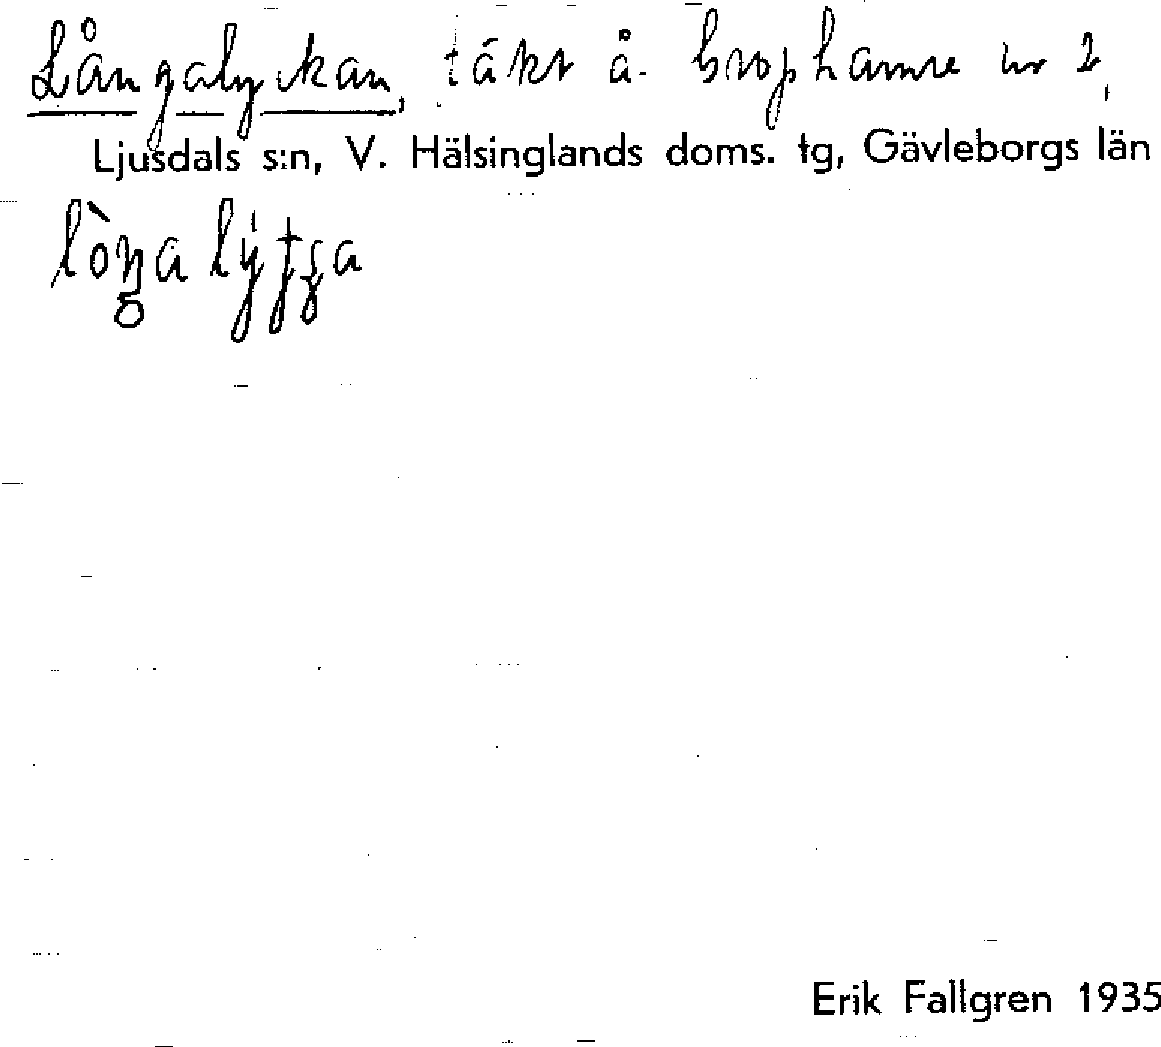 Långalyckan, täkt å nr 2,
Ljusdals s:n, V. Hälsinglands doms. tg, Gävleborgs län
Erik Fallgren 1935